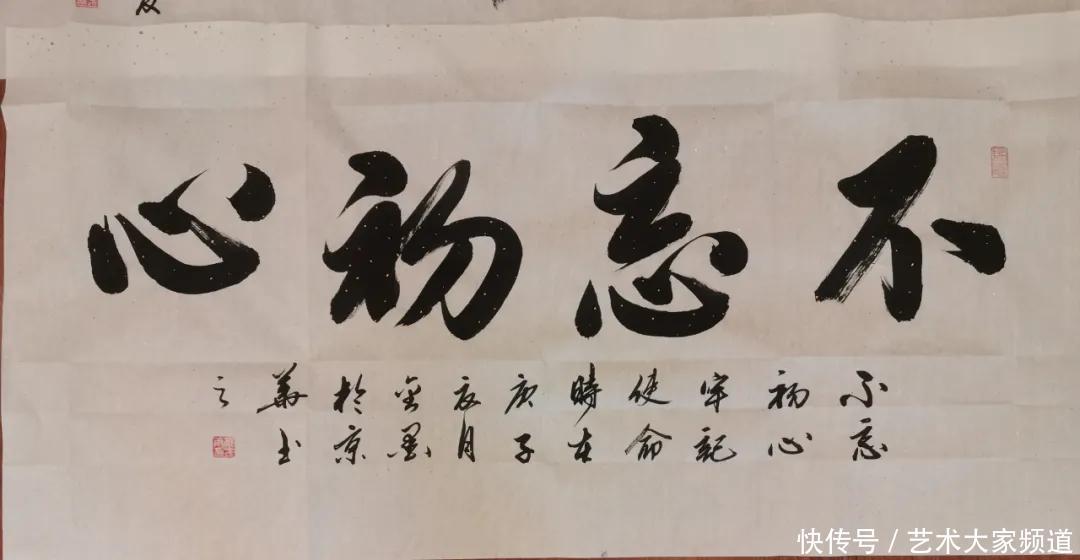 不忘初心
不忘
初心
牢記
使命
時在
庚子
夏月
金墨
於京
華書
之
快传号 / 艺术大家频道